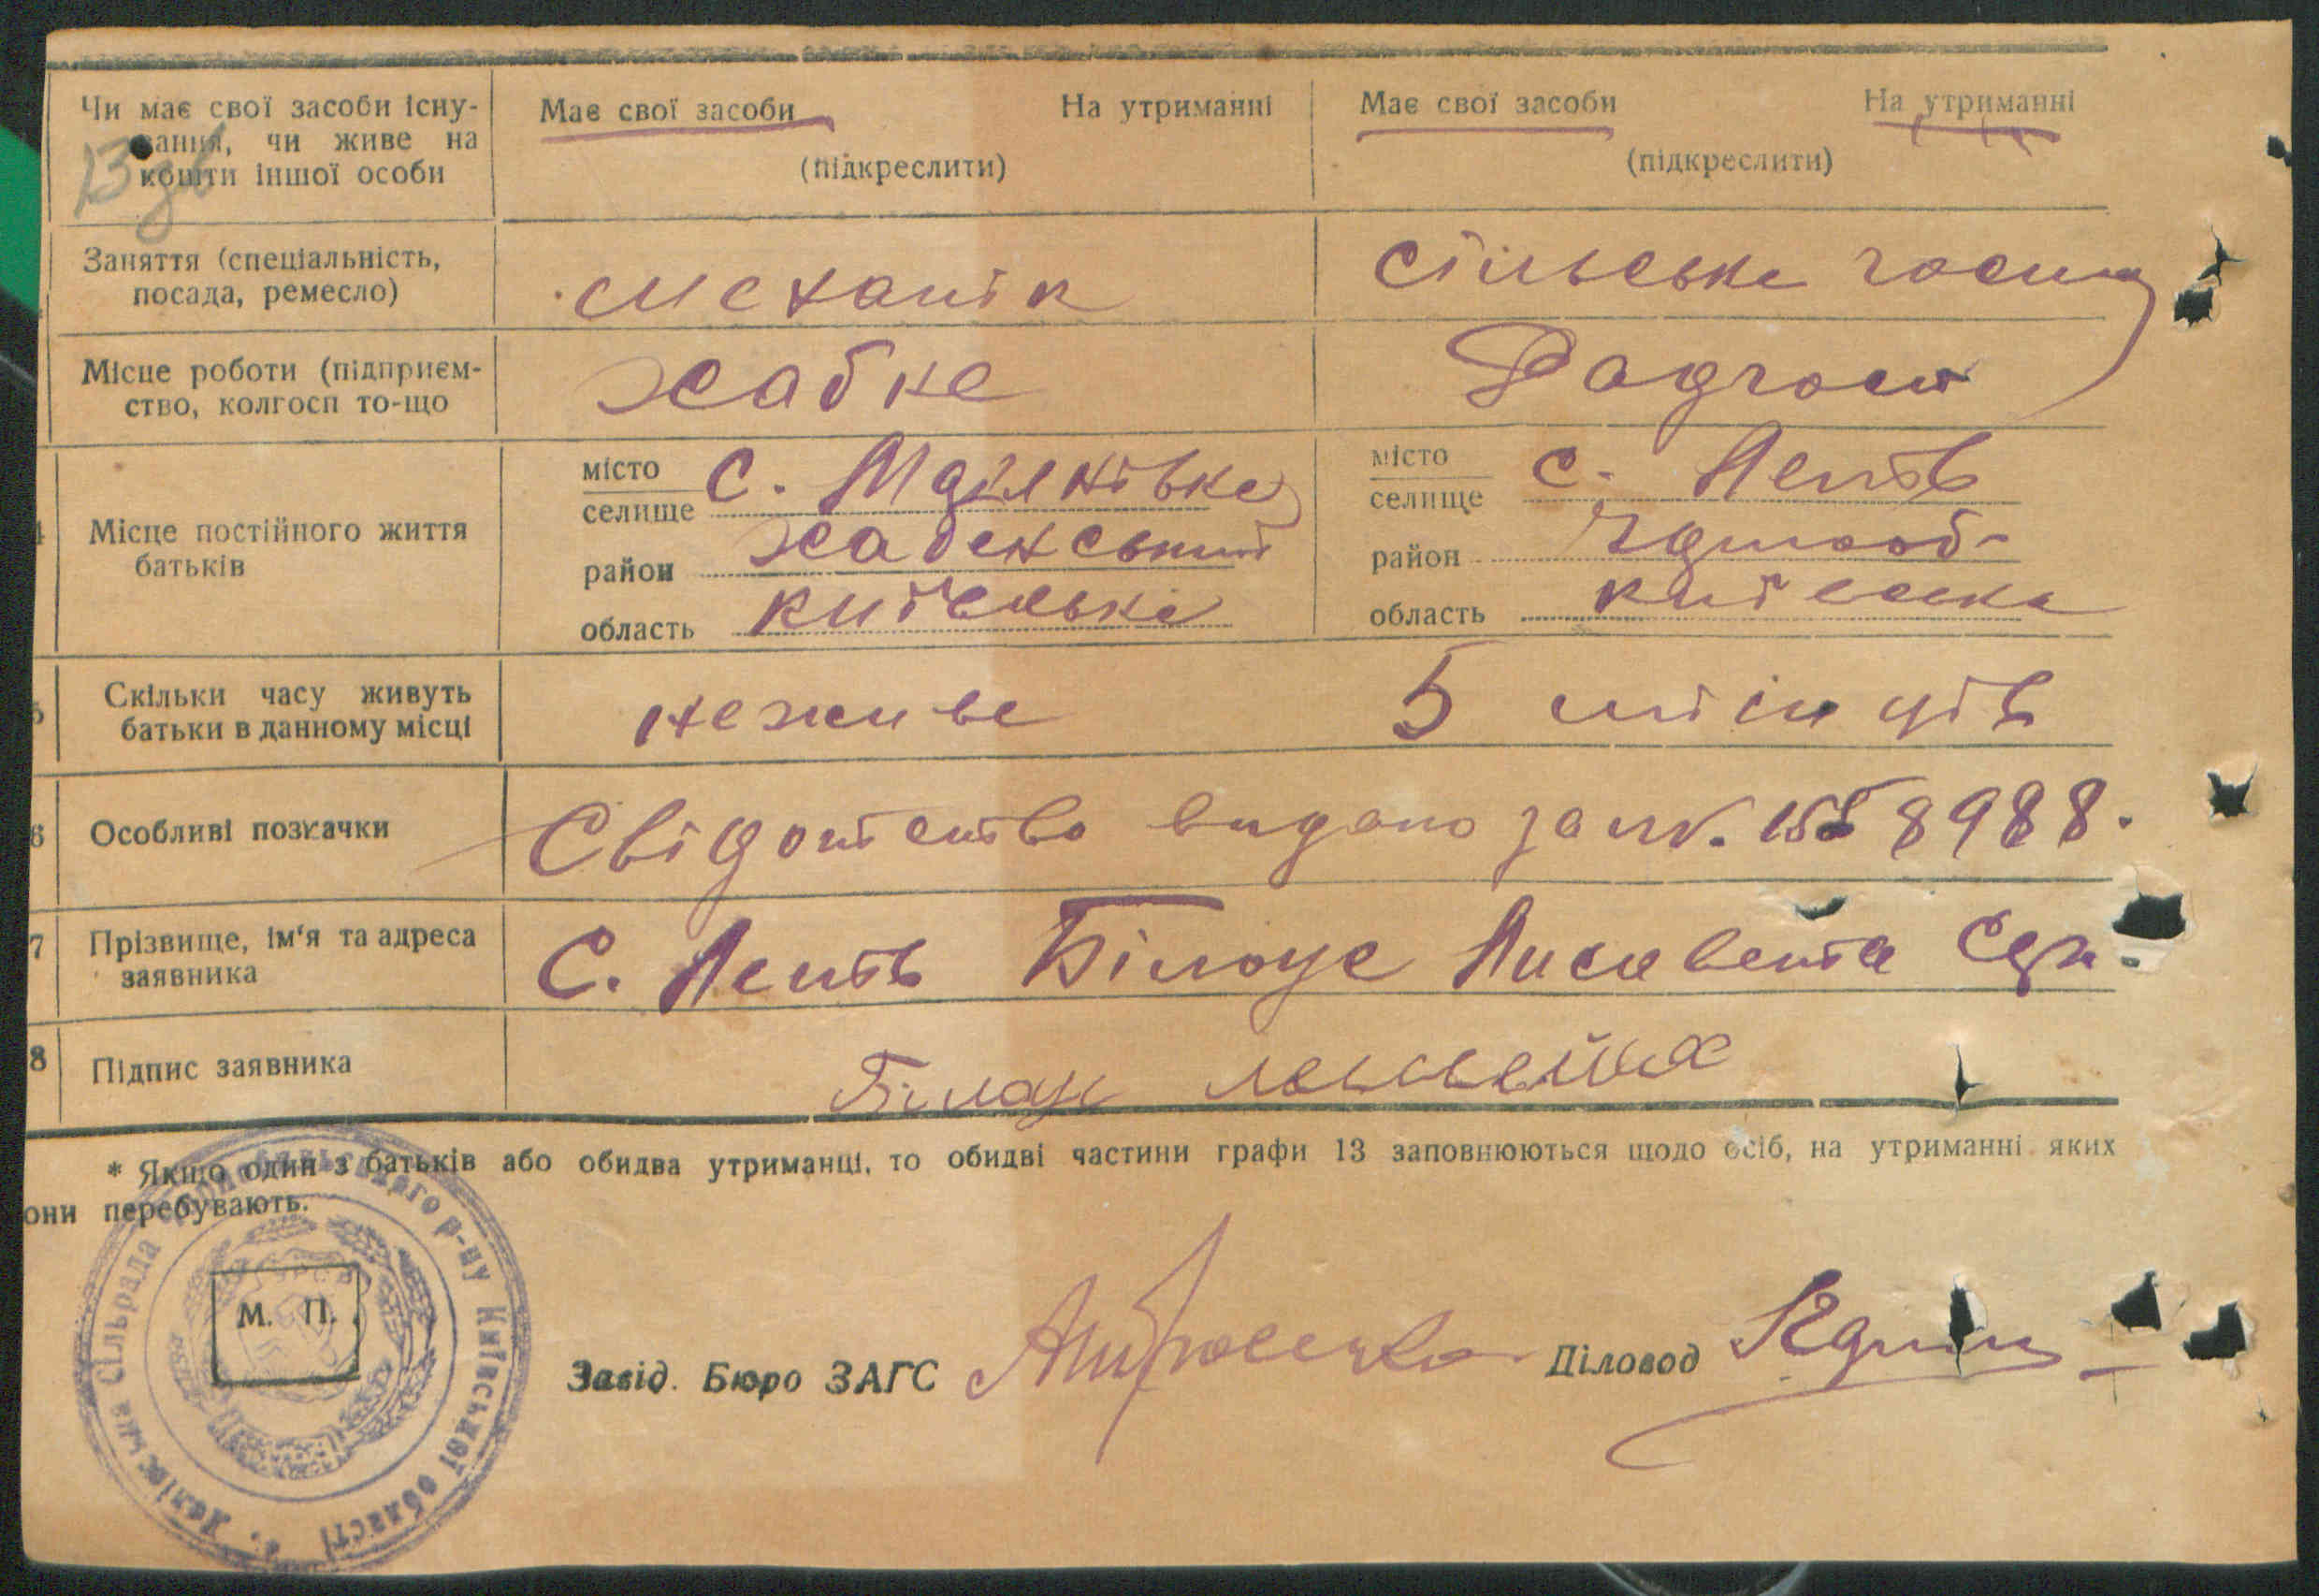 Чи має свої засоби існу-
вання, чи живе на
кошти іншої особи
13зв
Має свої засоби На утриманні
(підкреслити)
Має свої засоби На утриманні
(підкреслити)
Заняття (спеціальність,
посада, ремесло)
механік
сільське госп
Місце роботи (підприєм-
ство, колгосп то-що
Хабне
Радгосп
Місце постійного життя
батьків
місто
селище
с.
район Хабенський
область київське
місто
селище
с.
район
область київска
5
Скільки часу живуть
батьки в данному місці
неживе
5 місяців
6
Особливі позначки
Свідотство видано за 8988.
7
Прізвище, ім'я та адреса
заявника
С. Білоус Лисавета
8
Підпис заявника
Білоус
* Якщо один з батьків або обидва утриманці, то обидві частини графи 13 заповнюються щодо осіб, на утриманні яких
они перебувають.
М. П.
УРСР
Сільрада р-ну Київської області
Завід. Бюро ЗАГС
Діловод